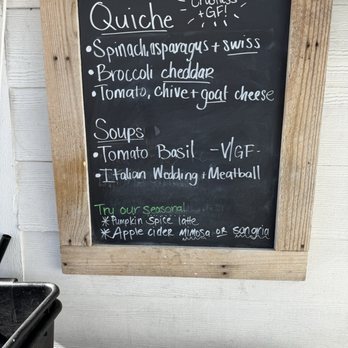 Crustless
+GF!
Quiche
• Spinach, asparagus + swiss
• Broccoli cheddar
• Tomato, chive + goat cheese
Soups
• Tomato Basil -V/GF-
• Italian Wedding + Meatball
Try our seasonal
* Pumpkin Spice latte
* Apple cider mimosa or sangria